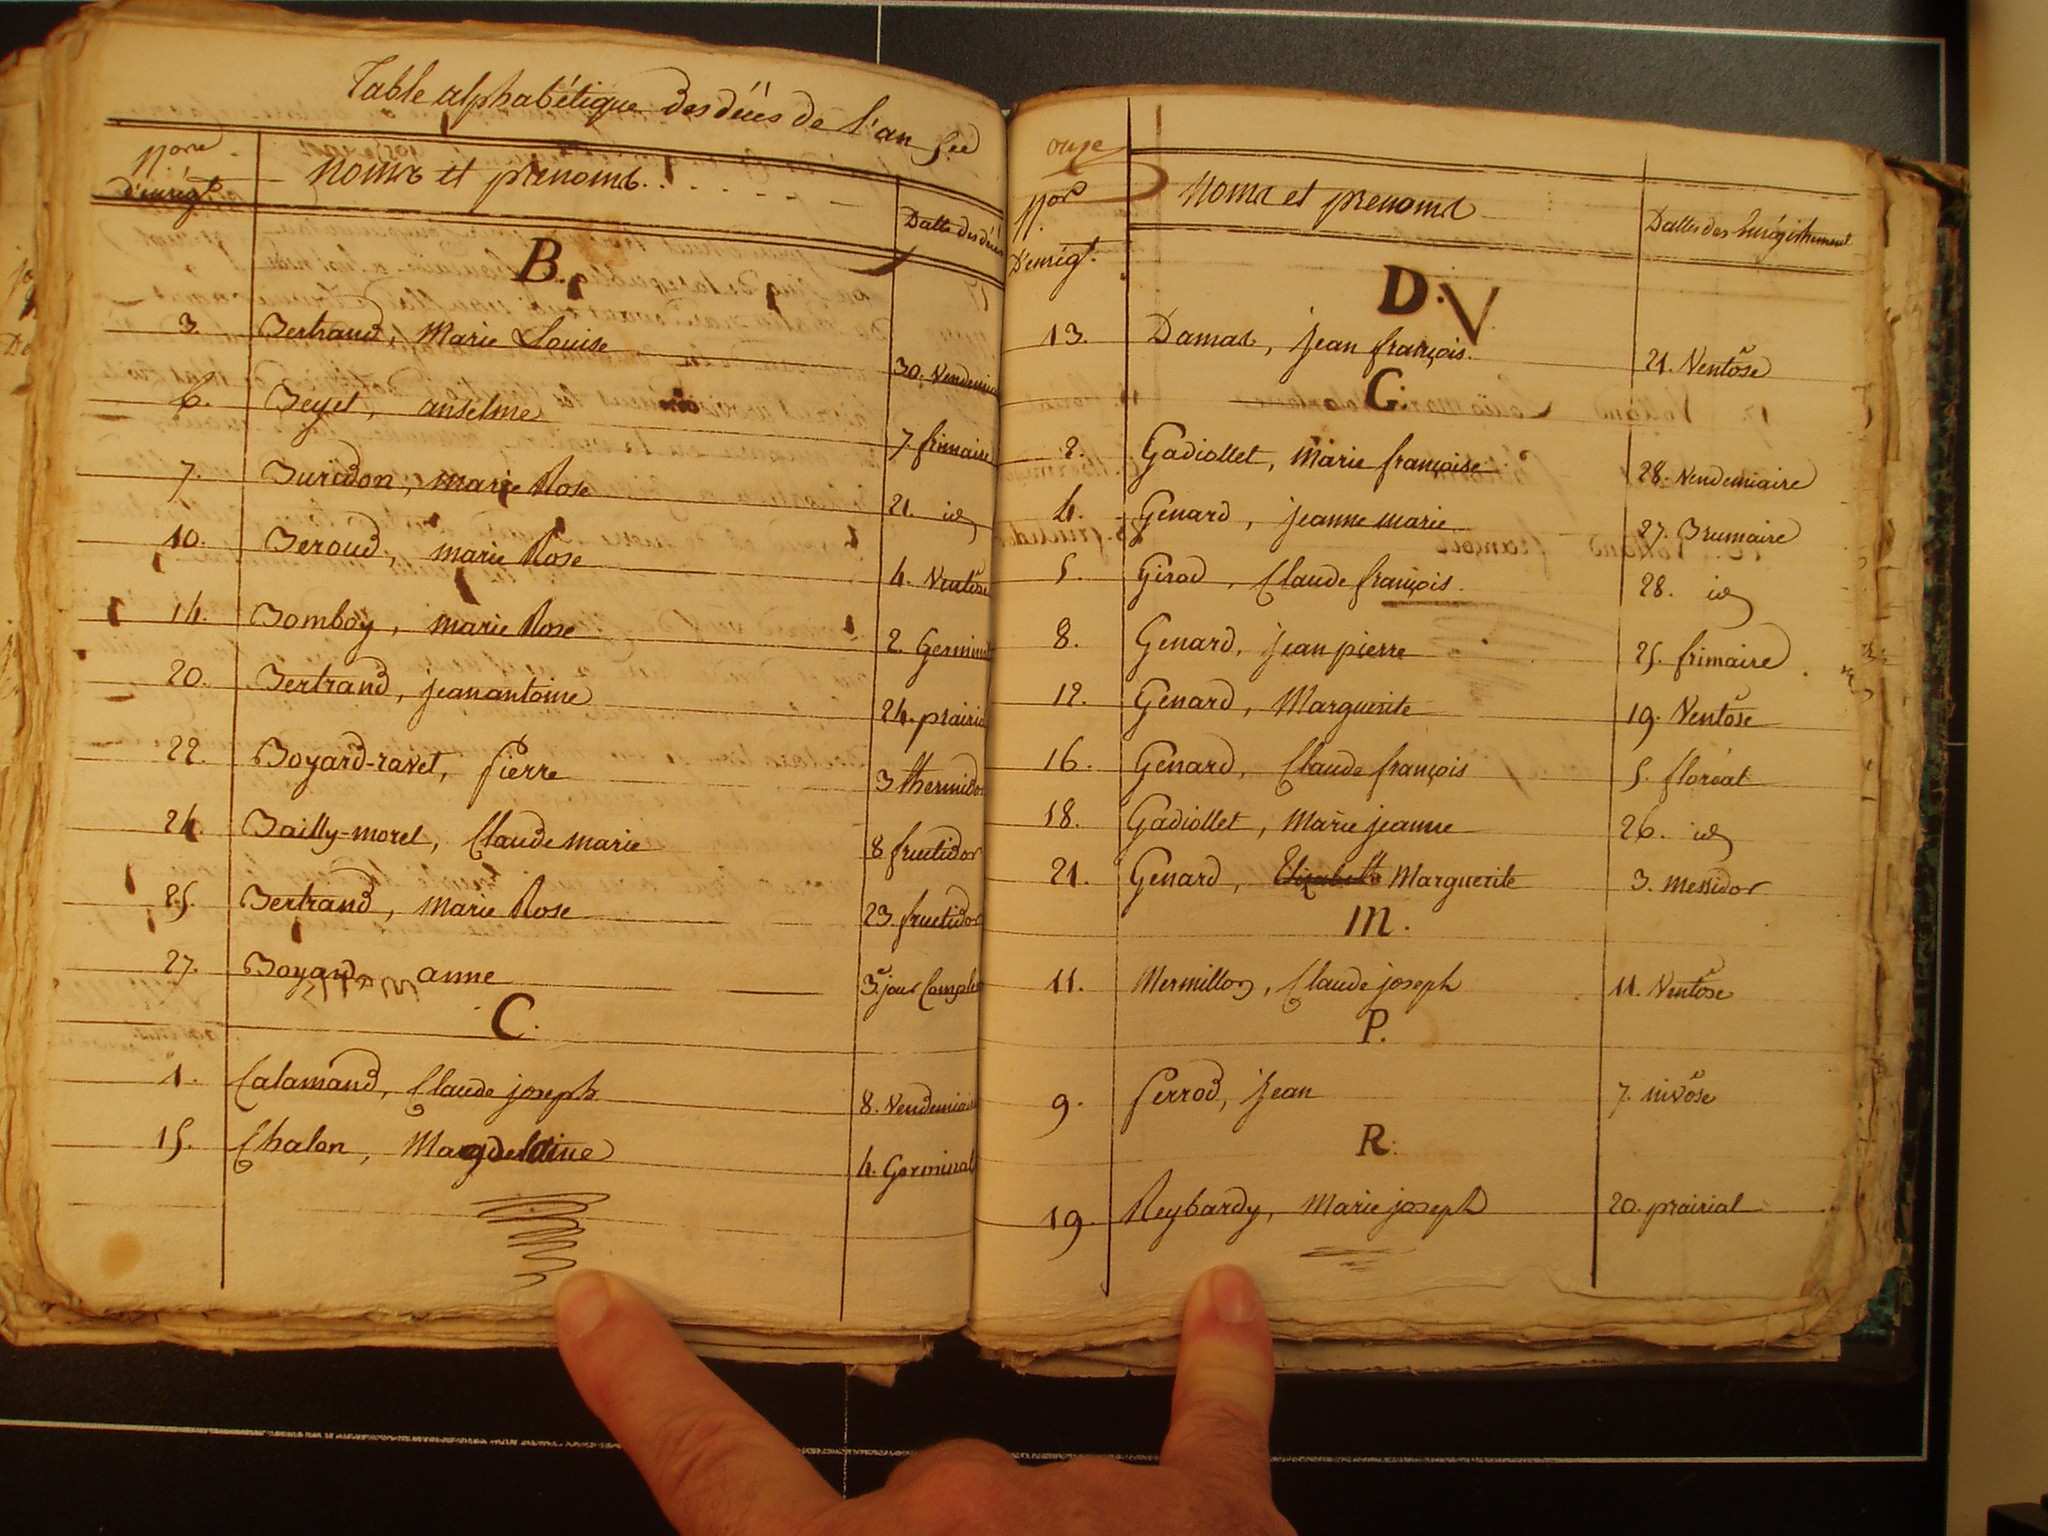 Table alphabétique des décés de l'an
N.os d'enrégt. Noms et prenoms. Datte des décés
B.
3. Bertrand, Marie Louise 30. Vendemiai
6. Beyet, anselme 7. frimaire
7. Buridon, marie Rose 21. id
10. Beroud, marie Rose 4. Ventôse
14. Bomboy, marie Rose 2. Germinal
20. Bertrand, jean antoine 24. prairial
22. Boyard-ravet, Pierre 3 thermidor
24. Bailly-morel, Claude marie 8 fructidor
25. Bertrand, marie Rose 23. fructidor
27. Boyard anne 3.e jour Complem
C.
1. Calamand, Claude joseph 8. Vendemiaire
15. Chalon, Magdelaine 4. Germinal
onze
N.os D'enrégt. Noms et prenoms Dattes des Enrégistrement
D. V
13. Damas, jean françois. 21. Ventôse
G.
2. Gadiollet, Marie françoise 28. Vendemiaire
4. Genard, jeanne marie 27. Brumaire
5. Girod, Claude françois. 28. id
8. Genard, jean pierre 25. frimaire
12. Genard, Marguerite 19. Ventôse
16. Genard, Claude françois 5. floréal
18. Gadiollet, Marie jeanne 26. id
21. Genard, Elizabeth Marguerite 3. messidor
M.
11. Mermillon, Claude joseph 11. Ventôse
P.
9. Perrod, Jean 7. nivôse
R.
19. Reybardy, Marie joseph 20. prairial